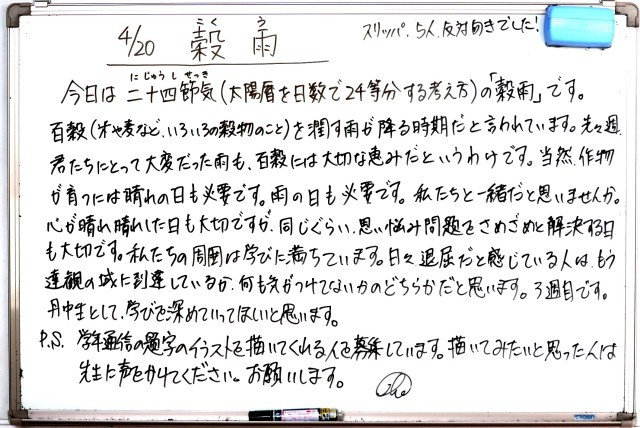 4/20 穀雨
こく う
スリッパ、5人、反対向きでした!
にじゅうし せっき
今日は二十四節気(太陽暦を日数で24等分する考え方)の「穀雨」です。
百穀(米や麦など、いろいろの穀物のこと)を潤す雨が降る時期だと言われています。先々週、
君たちにとって大変だった雨も、百穀には大切な恵みだというわけです。当然、作物
が育つには晴れの日も必要です。雨の日も必要です。私たちと一緒だと思いませんか。
心が晴れ晴れした日も大切ですが、同じぐらい、思い悩み問題をさめざめと解決する日
も大切です。私たちの周囲は学びに満ちています。日々退屈だと感じている人は、もう
達観の域に到達しているか、何も気がつけてないかのどちらかだと思います。3週目です。
丹中生として、学びを深めていってほしいと思います。
P.S. 学年通信の題字のイラストを描いてくれる人を募集しています。描いてみたいと思った人は
先生に声をかけてください。お願いします。
CROWN